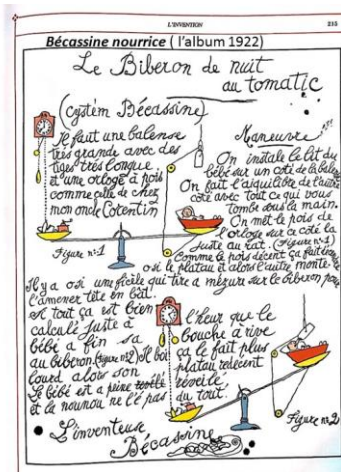 L'INVENTION
215
Bécassine nourrice ( l'album 1922)
Le Biberon de nuit
au tomatic
(Cystém Bécassine)
Il faut une balense
très grande avec des
tiges très longue,
et une orloge à pois
comme celle de chez
mon oncle Corentin
Figure n°1
Maneuvre
On instale le lit du
bébé sur un coté de la balense
On fait l'aiquilibre de l'autre
côté avec tout ce qui vous
tombe sous la main.
On met le pois de
l'orloge sur ce côté la
juste au rat. (Figure n°1)
Comme le pois décent ça fait
osi le plateau et alors l'autre monte
Il y a osi une ficèle qui tire a mezur sur le biberon pour
l'amener tête en bât.
et tout ça est bien
calculé juste à
bébé a fin sa
au biberon (figure n°2) Il boi
lourd alors son
Le bébé est a peine
et la nounou ne l'è pas
l'heur que le
bouche a rive
ça le fait plus
plateau redecent
réveilé
du tout.
Figure n°2
L'inventeuse
Bécassine